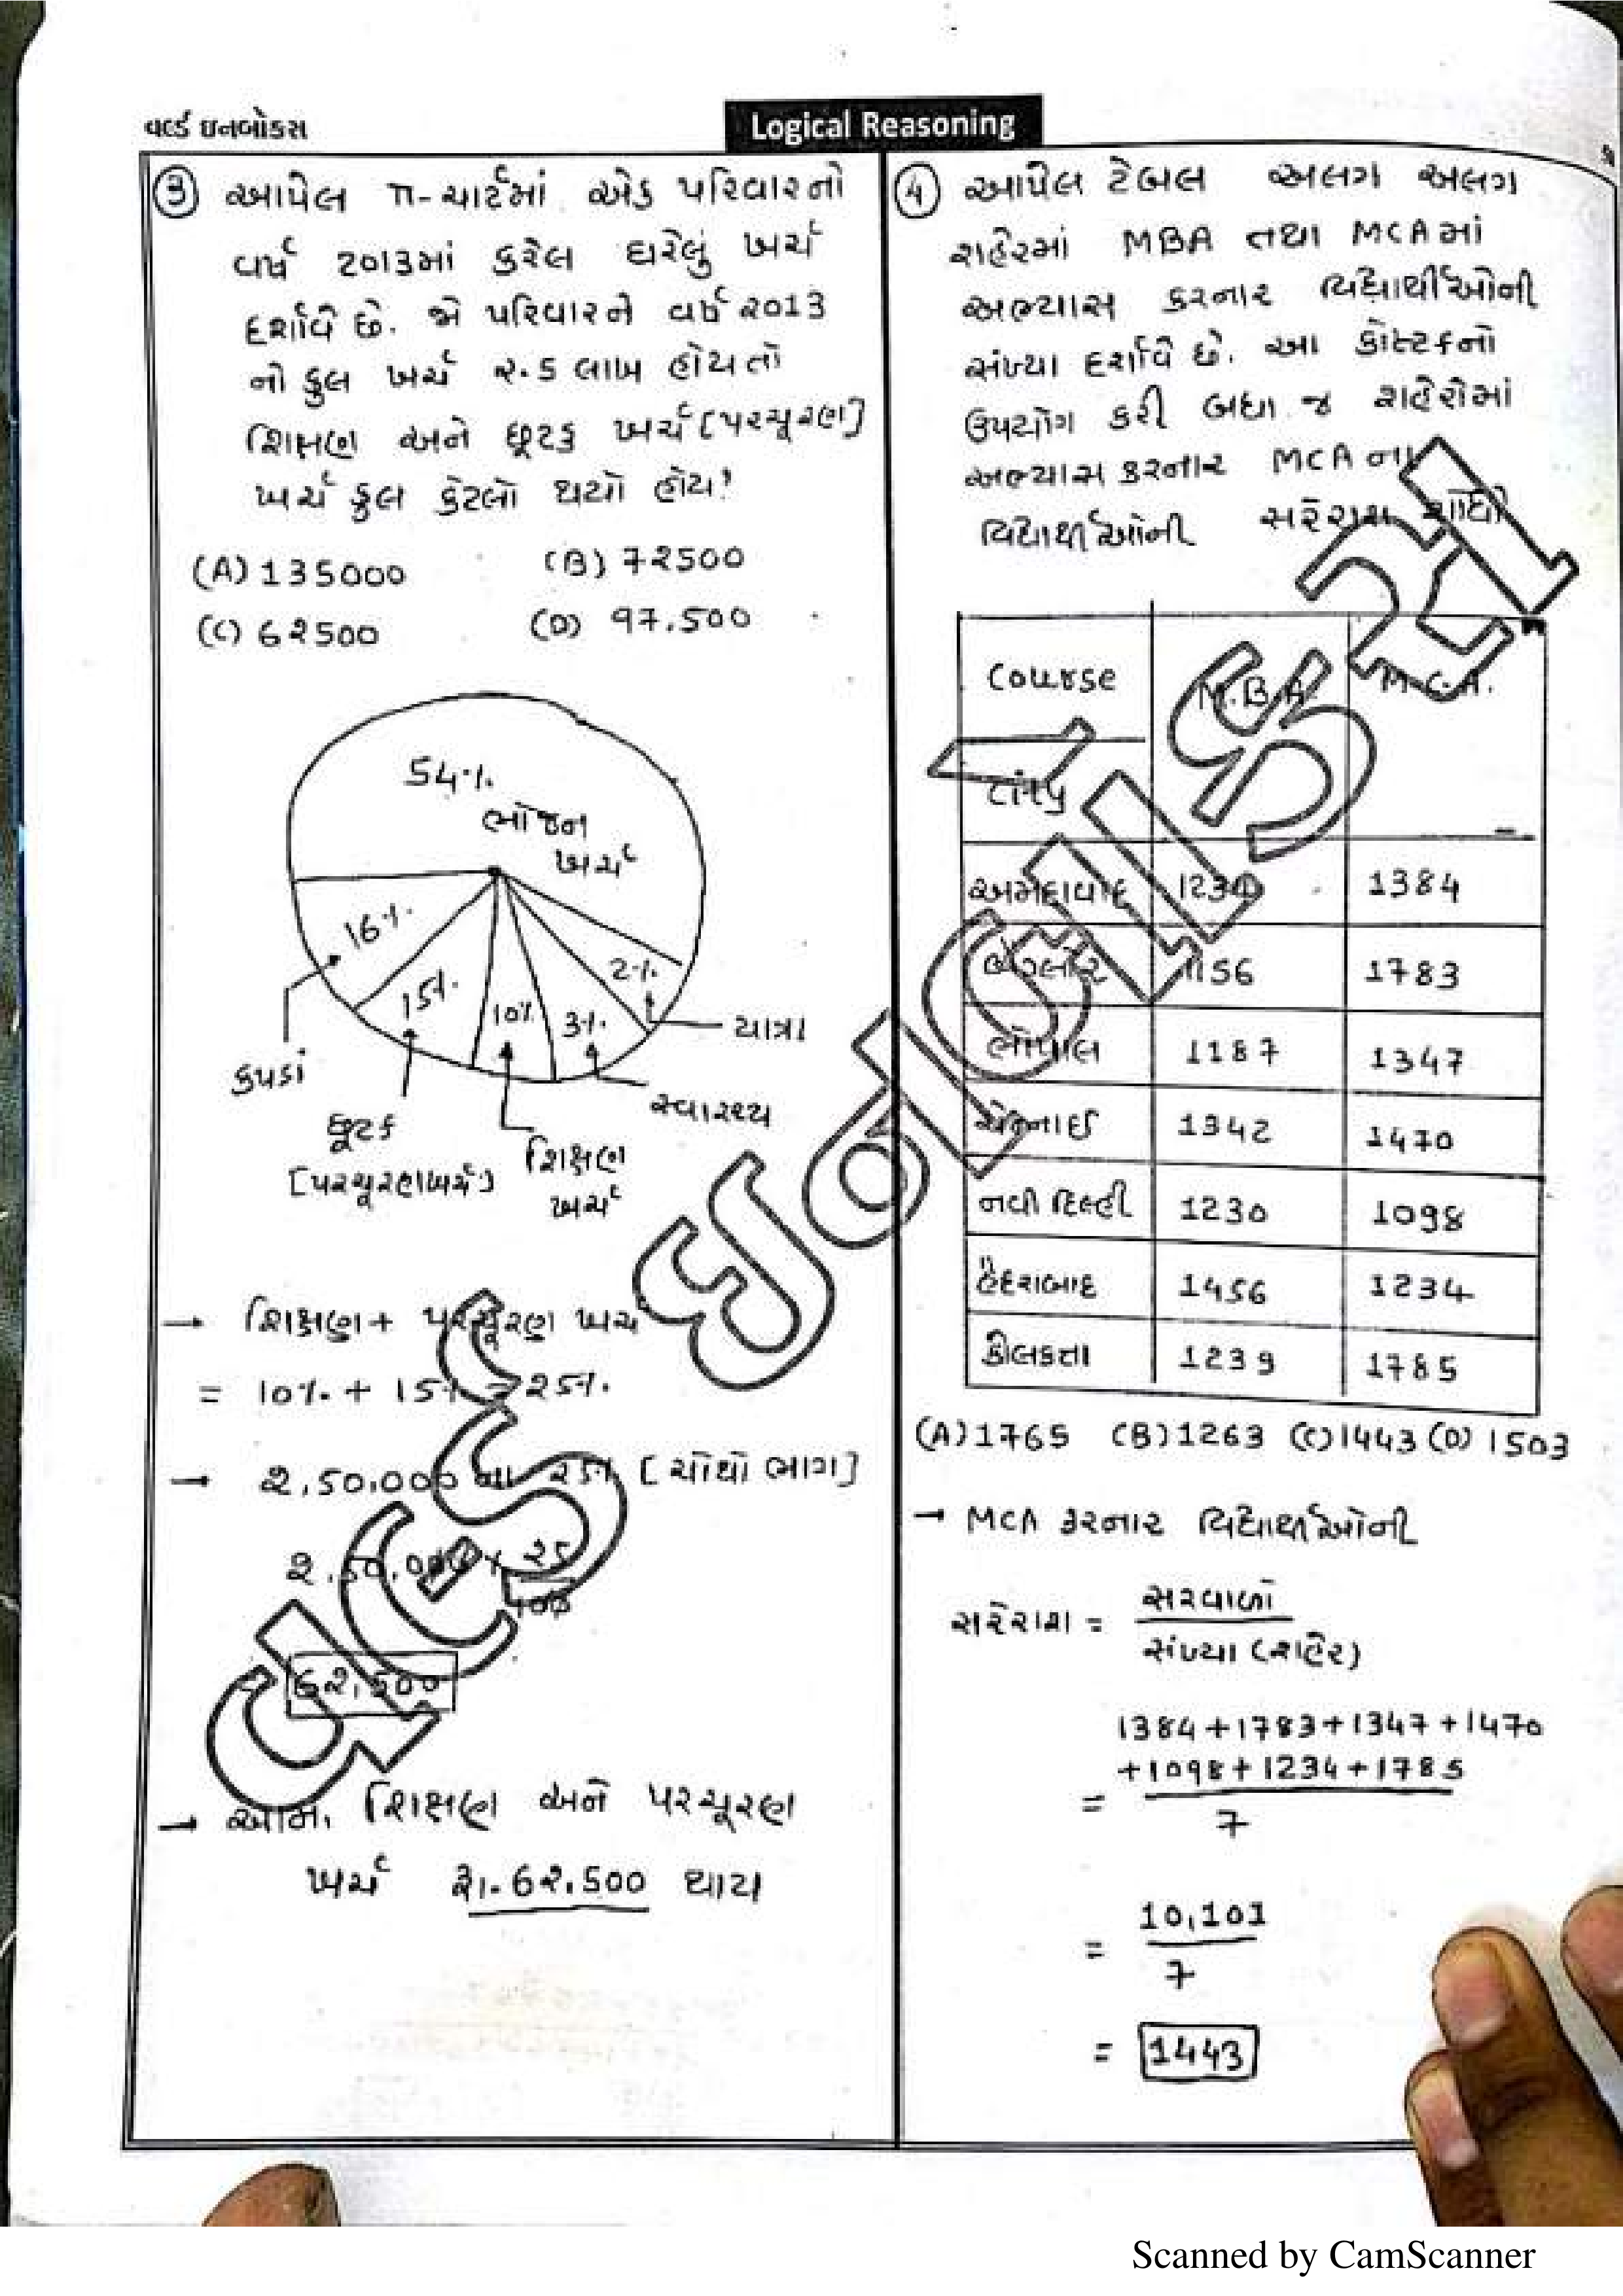 વર્લ્ડ ઇનબોક્સ
Logical Reasoning
③ આપેલ π-ચાર્ટમાં એક પરિવારનો
વર્ષ 2013માં કરેલ ઘરેલું ખર્ચ
દર્શાવે છે. જો પરિવારને વર્ષ ૨013
નો કુલ ખર્ચ ૨.5 લાખ હોય તો
શિક્ષણ અને છૂટક ખર્ચ [પરચૂરણ]
ખર્ચ કુલ કેટલો થયો હોય?
(A) 135000 (B) 7૨500
(C) 6૨500 (D) 97.500
54%
ભોજન
ખર્ચ
16%
15%
10%
3%
2%
યાત્રા
કપડાં
સ્વાસ્થ્ય
છૂટક
[પરચૂરણખર્ચ]
શિક્ષણ
ખર્ચ
→ શિક્ષણ + પરચૂરણ ખર્ચ
= 10% + 15% = 25%
→ ૨,50,000 ના 25% [ચોથો ભાગ]
૨,50,000 × ૨5
100
6૨,500
→ આમ, શિક્ષણ અને પરચૂરણ
ખર્ચ રૂા.6૨,500 થાય
④ આપેલ ટેબલ અલગ અલગ
શહેરમાં MBA તથા MCAમાં
અભ્યાસ કરનાર વિદ્યાર્થીઓની
સંખ્યા દર્શાવે છે. આ કોષ્ટકનો
ઉપયોગ કરી બધા જ શહેરોમાં
અભ્યાસ કરનાર MCA ના
વિદ્યાર્થીઓની સરેરાશ શોધો
Course M.B.A. M.C.A.
અમદાવાદ 1234 1384
બેંગ્લોર 1156 1783
ભોપાલ 1187 1347
ચેન્નાઈ 1342 1470
નવી દિલ્હી 1230 1098
હૈદરાબાદ 1456 1234
કોલકત્તા 1239 1785
(A) 1765 (B) 1263 (C) 1443 (D) 1503
→ MCA કરનાર વિદ્યાર્થીઓની
સરેરાશ = સરવાળો
સંખ્યા (શહેર)
1384+1783+1347+1470
+1098+1234+1785
=
7
= 10,101
7
= 1443
Scanned by CamScanner